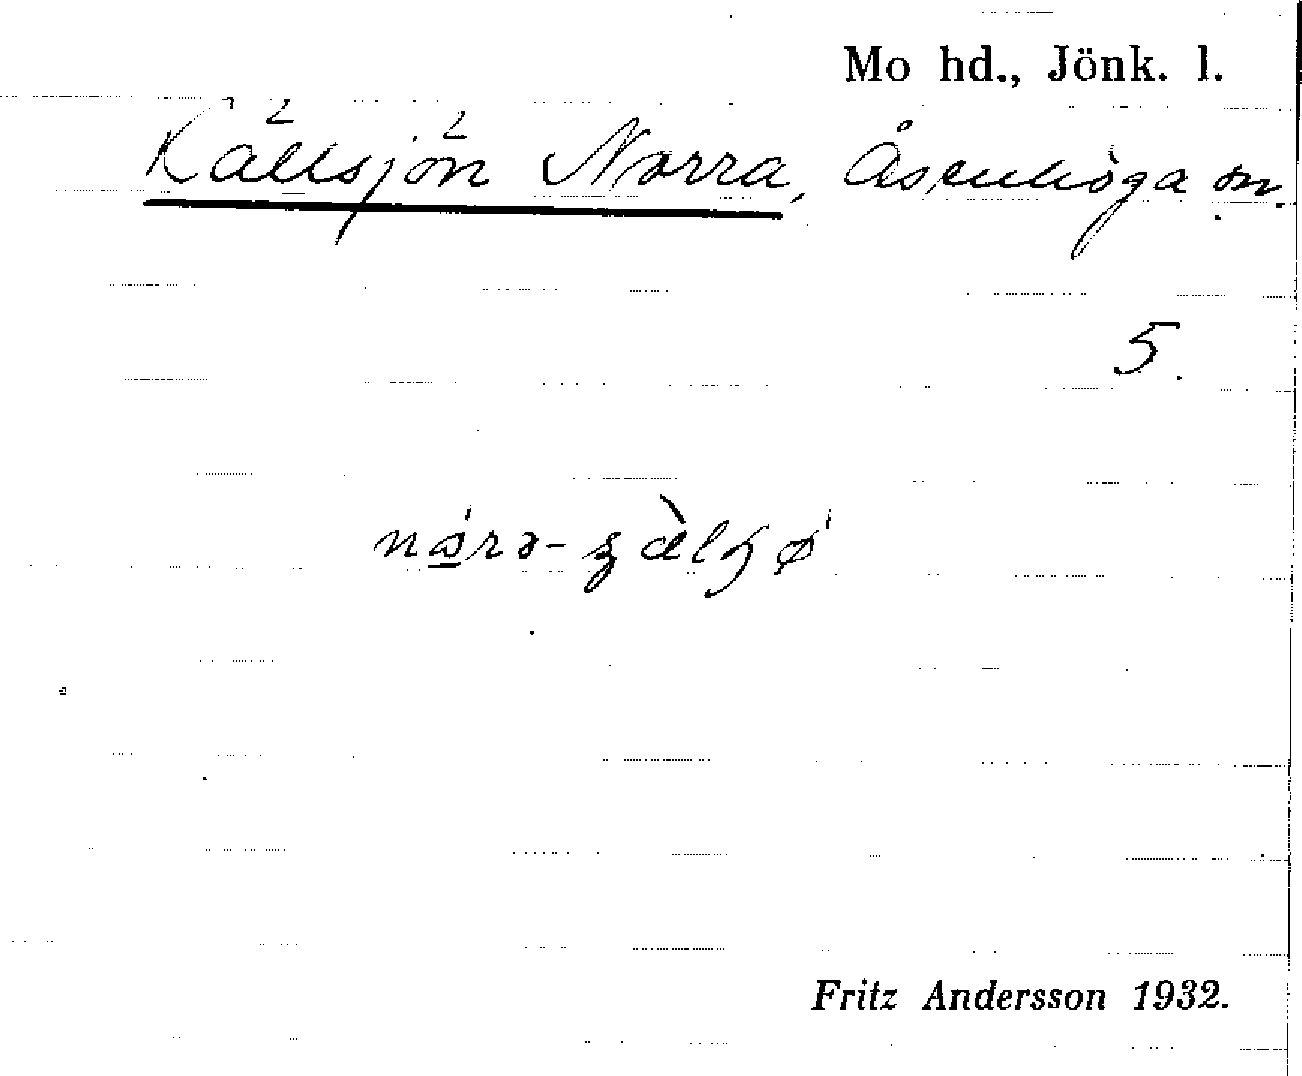 Mo hd., Jönk. l.
Källsjön Norra, Åsenhöga sn.
5.
Fritz Andersson 1932.